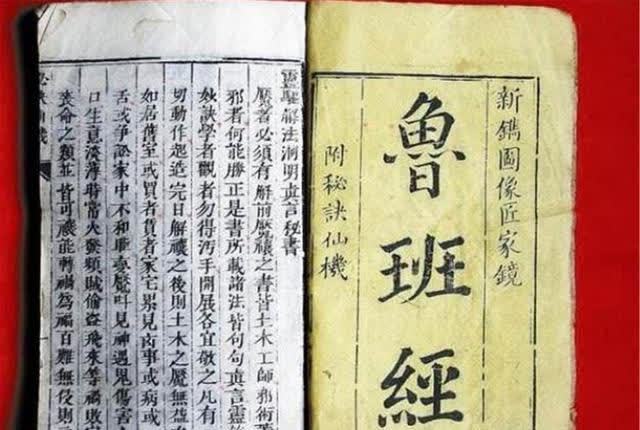 新鐫圖像匠家鏡
魯班經
附秘訣仙機
靈驅解法洞明真言秘書
魘者必須有解前魘禳之書皆土木工師邪術
邪者何能勝正是書所載諸法皆句句真言靈
妙訣學者觀者勿得污手開展各宜敬之凡有
切動作起造完日解禳之後則土木之魘無益
如居舊室或買者賃者家宅累見凶事或病或
舌或爭訟家中不和睡夢魘叫見神遇鬼傷害
口生意淡薄時當火發類賊偷盜飛來等禍敗
喪命之類並皆可禳能轉禍為福百難無侵則